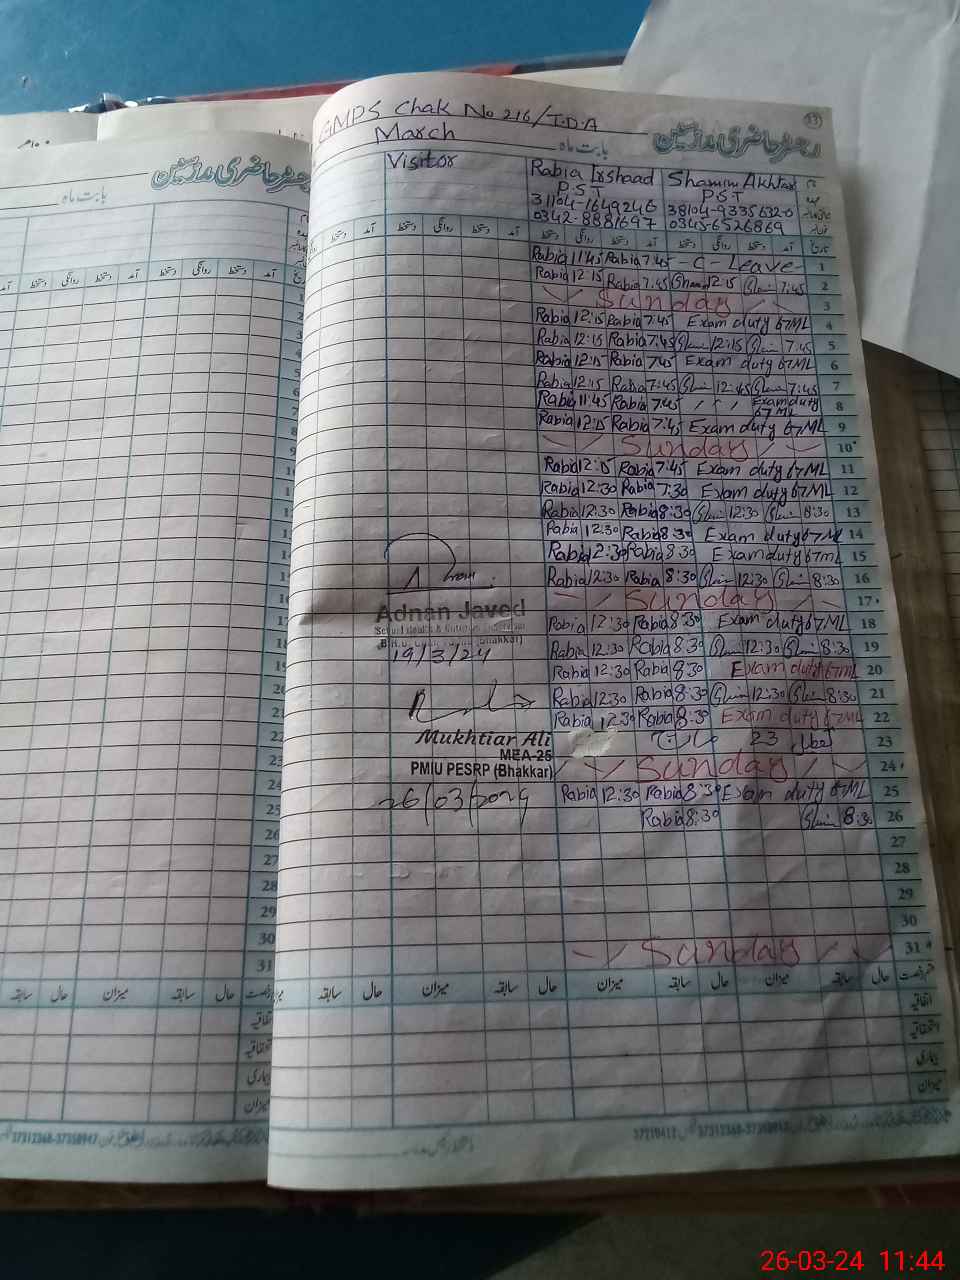 GMPS Chak No 216/T.D.A
33
March
بابت ماہ
رجسٹر حاضری مدرسین
Visitor
Rabia Irshaad
P.S.T
31104-1649246
0342-8881697
Shamim Akhtar
P.S.T
38104-9335632-0
0345-6526869
دستخط روانگی دستخط آمد دستخط روانگی دستخط آمد تاریخ
Rabia 11:45 Rabia 7:45 - C - Leave - 1
Rabia 12:15 Rabia 7:45 12:15 7:45 2
Sunday 3
Rabia 12:15 Rabia 7:45 Exam duty 67ML 4
Rabia 12:15 Rabia 7:45 12:15 7:45 5
Rabia 12:15 Rabia 7:45 Exam duty 67ML 6
Rabia 12:15 Rabia 7:45 12:45 7:45 7
Rabia 11:45 Rabia 7:45 Exam duty 67ML 8
Rabia 12:15 Rabia 7:45 Exam duty 67ML 9
Sunday 10
Rabia 12:15 Rabia 7:45 Exam duty 67ML 11
Rabia 12:30 Rabia 7:30 Exam duty 67ML 12
Rabia 12:30 Rabia 8:30 12:30 8:30 13
Rabia 12:30 Rabia 8:30 Exam duty 67ML 14
Rabia 12:30 Rabia 8:30 Exam duty 67ML 15
Rabia 12:30 Rabia 8:30 12:30 8:30 16
Sunday 17
Rabia 12:30 Rabia 8:30 Exam duty 67ML 18
Rabia 12:30 Rabia 8:30 12:30 8:30 19
Rabia 12:30 Rabia 8:30 Exam duty 67ML 20
Rabia 12:30 Rabia 8:30 12:30 8:30 21
Rabia 12:30 Rabia 8:30 Exam duty 67ML 22
تعطیل 23 مارچ 23
Sunday 24
Rabia 12:30 Rabia 8:30 Exam duty 67ML 25
Rabia 8:30 8:30 26
27
28
29
30
Sunday 31
Adnan Javed
19/3/24
Mukhtiar Ali
MEA-25
PMIU PESRP (Bhakkar)
26/03/2024
سابقہ حال میزان سابقہ حال میزان سابقہ حال میزان سابقہ حال
اتفاقیہ
استحقاقیہ
بیماری
میزان
رجسٹر حاضری مدرسین
بابت ماہ
26-03-24 11:44